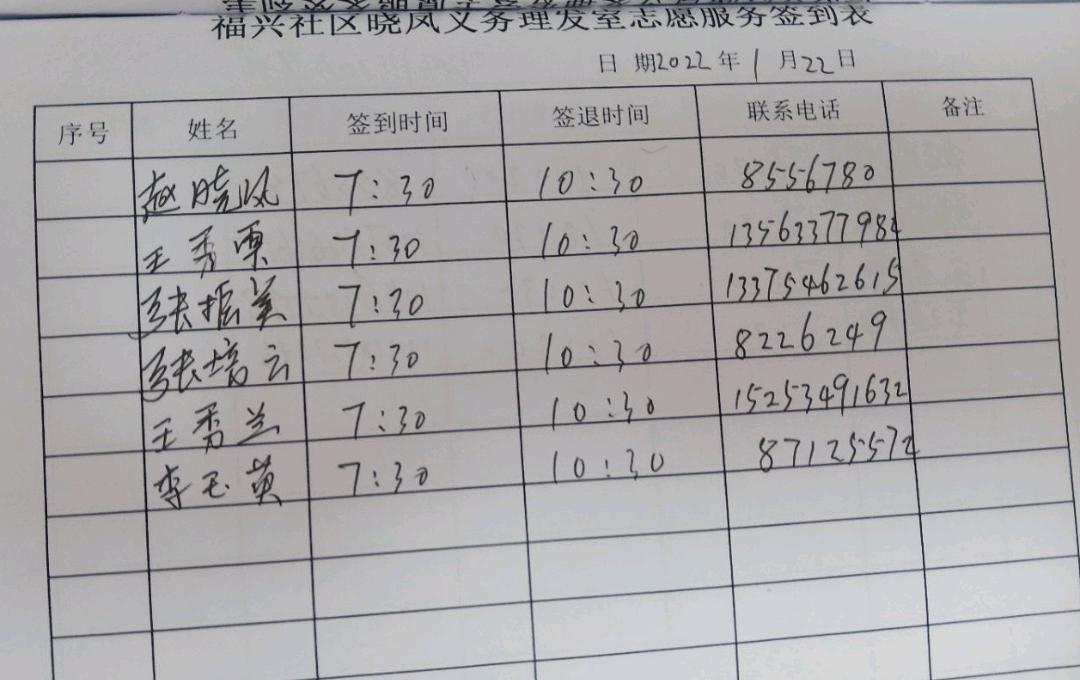 福兴社区晓风义务理发室志愿服务签到表
日 期2022年1月22日
序号 姓名 签到时间 签退时间 联系电话 备注
赵晓风 7:30 10:30 8556780
王秀粟 7:30 10:30 13563377982
张振美 7:30 10:30 13375462615
张培云 7:30 10:30 8226249
王秀兰 7:30 10:30 15253491632
李玉英 7:30 10:30 87125572